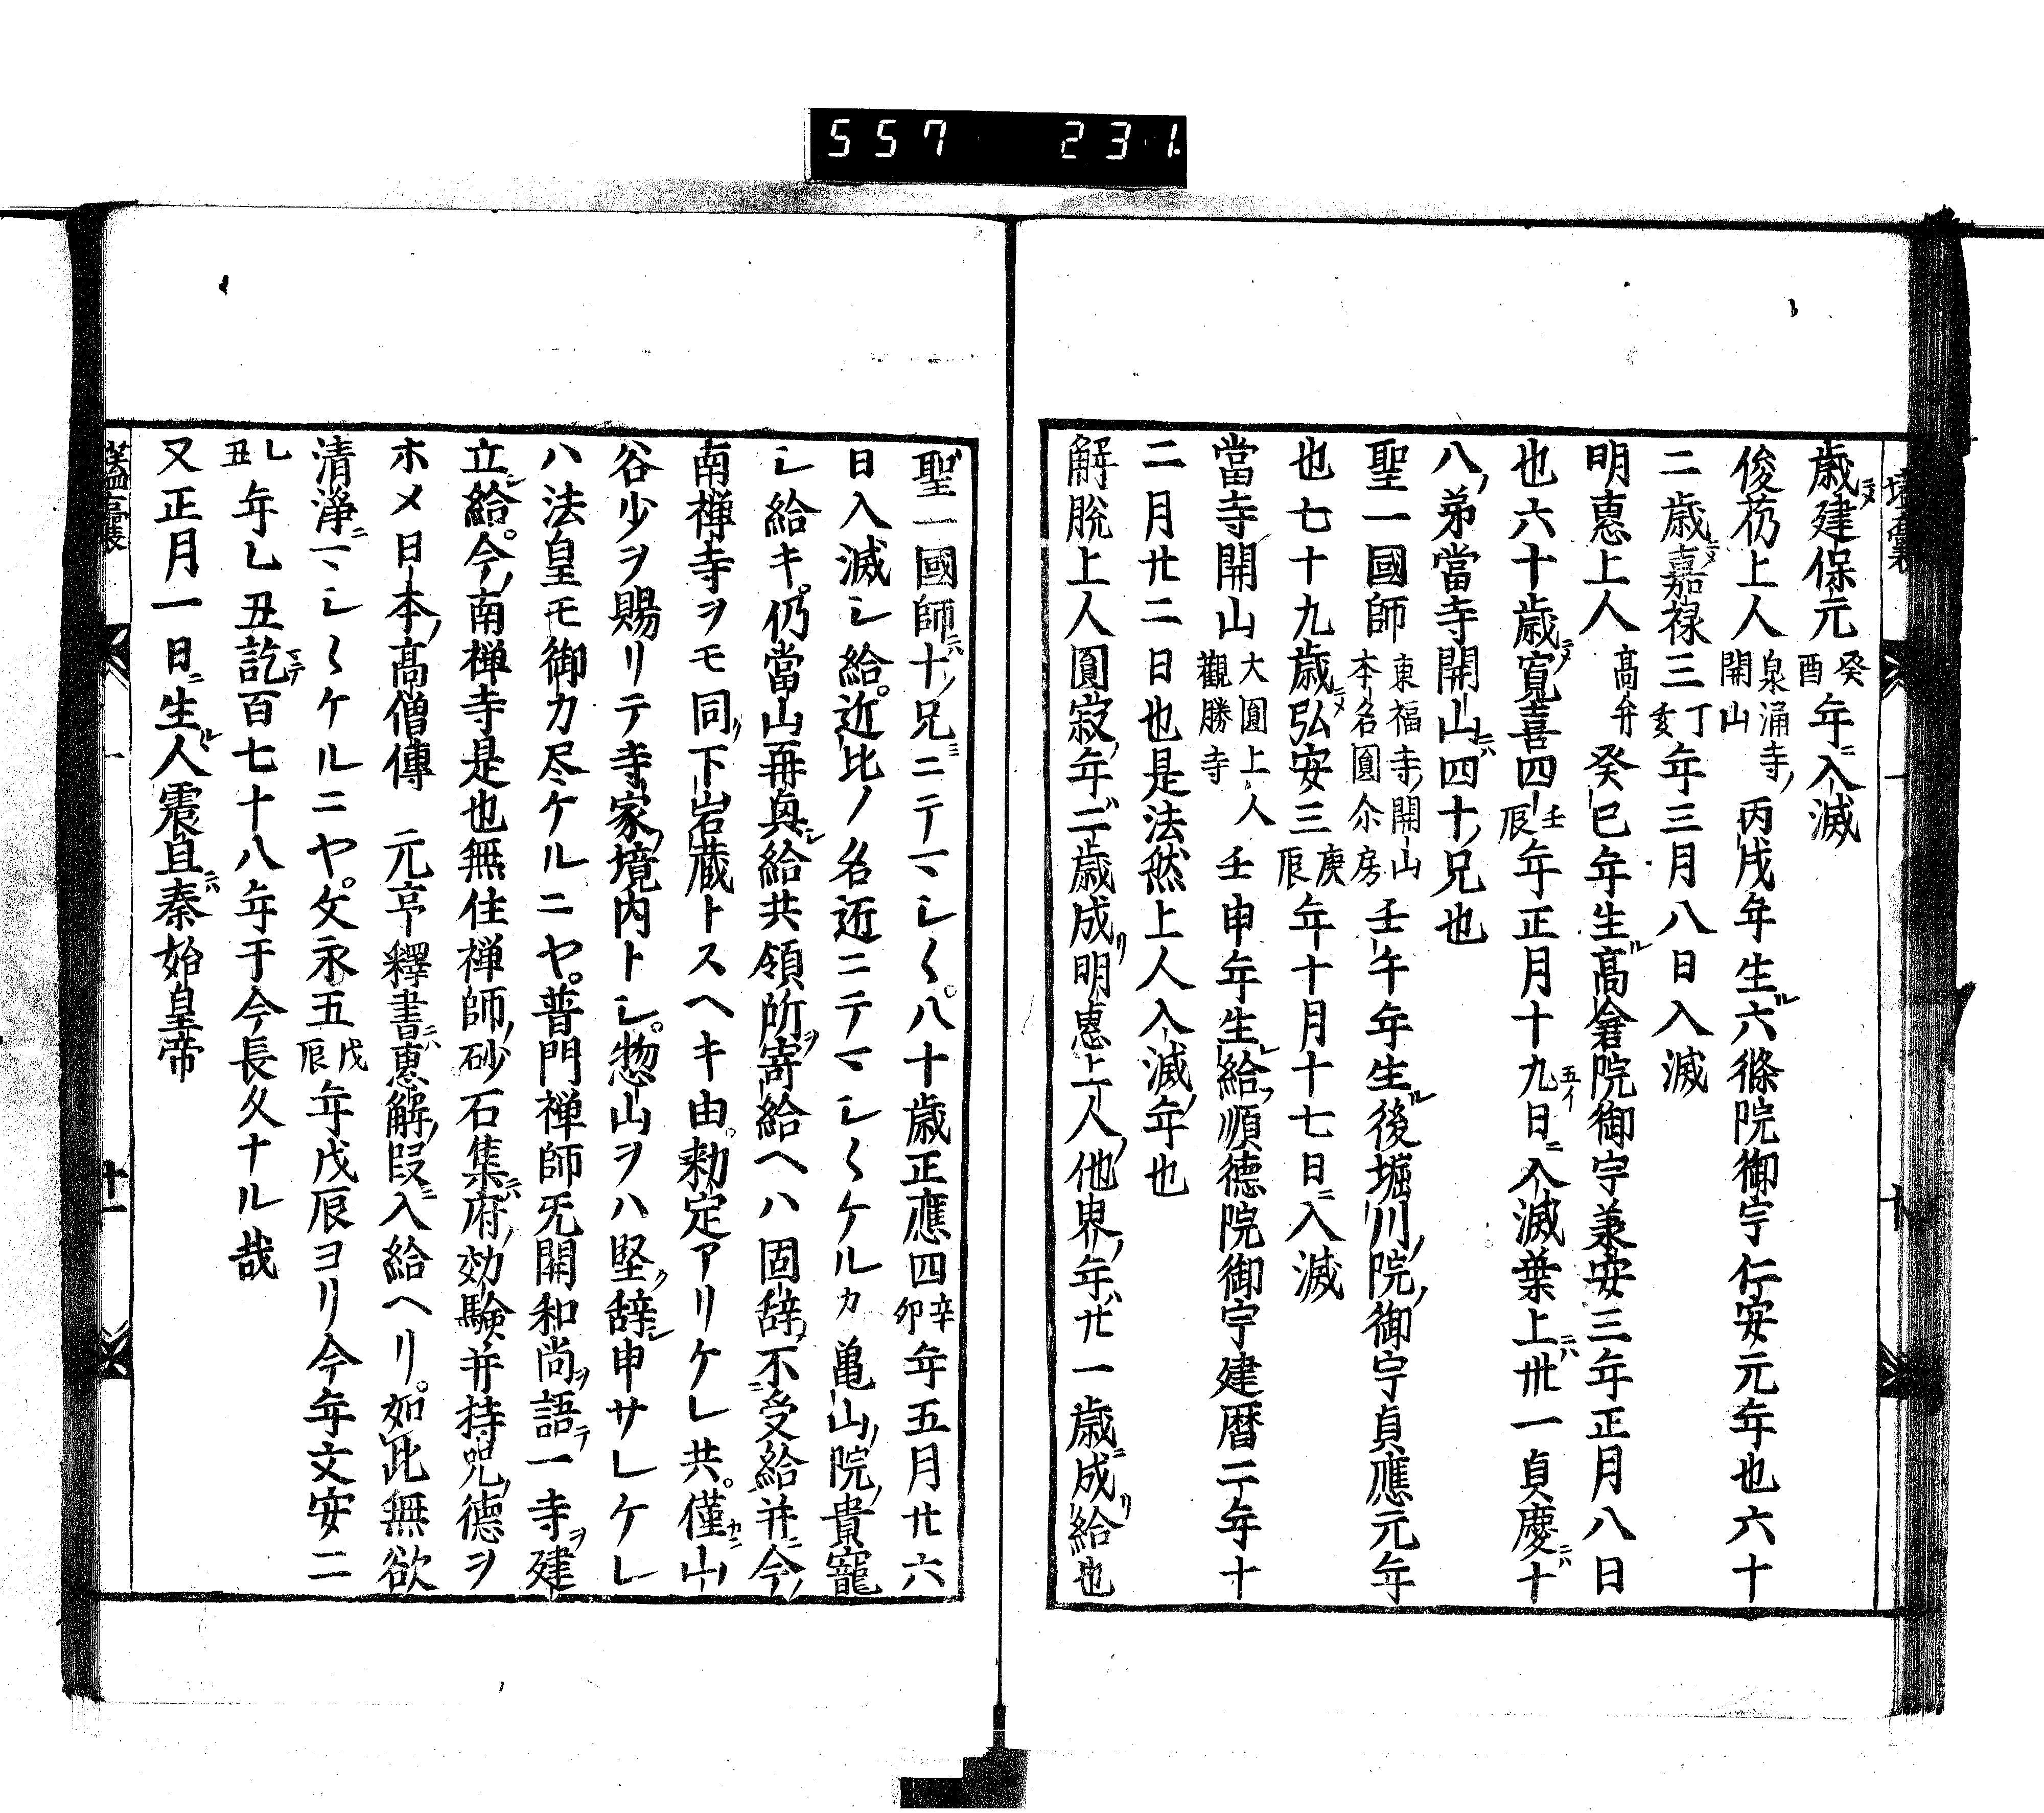 557 231
歳ニヌ建保元癸酉年ニ入滅
俊芿上人泉涌寺ノ開山丙戌年生ル六條院御宇仁安元年也六十
二歳ニヌ嘉禄三丁亥年三月八日入滅
明惠上人高弁癸巳年生ル高倉院御宇兼安三年正月八日
也六十歳ニヌ寛喜四壬辰年正月十九日ニ入滅葉上ニハ丗一貞慶ニハ十
八ノ弟當寺開山ニハ四十ノ兄也
聖一國師東福寺ノ開山本名圓尓房壬午年生ル後堀川ノ院ノ御宇貞應元年
也七十九歳ニヌ弘安三庚辰年十月十七日ニ入滅
當寺開山大圓上人觀勝寺壬申年生レ給フ順德院御宇建暦二年十
二月廿二日也是法然上人入滅ノ年也
解脱上人圓寂ノ年ハ二歳成リ明惠上人ノ他界ノ年ハ廿一歳ニ成リ給也
聖一國師ニハ十ノ兄ニニテマシ〱。八十歳正應四辛卯年五月廿六
日入滅シ給。近比ノ名近ニテマシ〱ケルカ亀山ノ院ノ貴寵
シ給キ。仍當山再興シ給共領所ヲ寄給ヘハ固辞ヌ不受給并ニ今ノ
南禅寺ヲモ同ク下岩蔵トスヘキ由。勅定アリケレ共。僅カニ山
谷少ヲ賜リテ寺家ノ境内トシ。惣山ヲハ堅ク辞シ申サレケレ
ハ法皇モ御カ尽ケルニヤ。普門禅師旡開和尚ヲ語テ一寺ヲ建
立シ給。今ノ南禅寺是也無住禅師ノ砂石集ニハ府ノ効験并持咒ノ德ヲ
ホメ日本ノ高僧傳 元亨釋書ニハ惠解ノ叚ニ入給ヘリ。如此無欲
清淨ニマシ〱ケルニヤ。文永五戊辰年戊辰ヨリ今年文安二
乚丑年乚丑訖マテ百七十八年于今長久ナル哉
又正月一日ニ生ル人震旦ニハ秦始皇帝